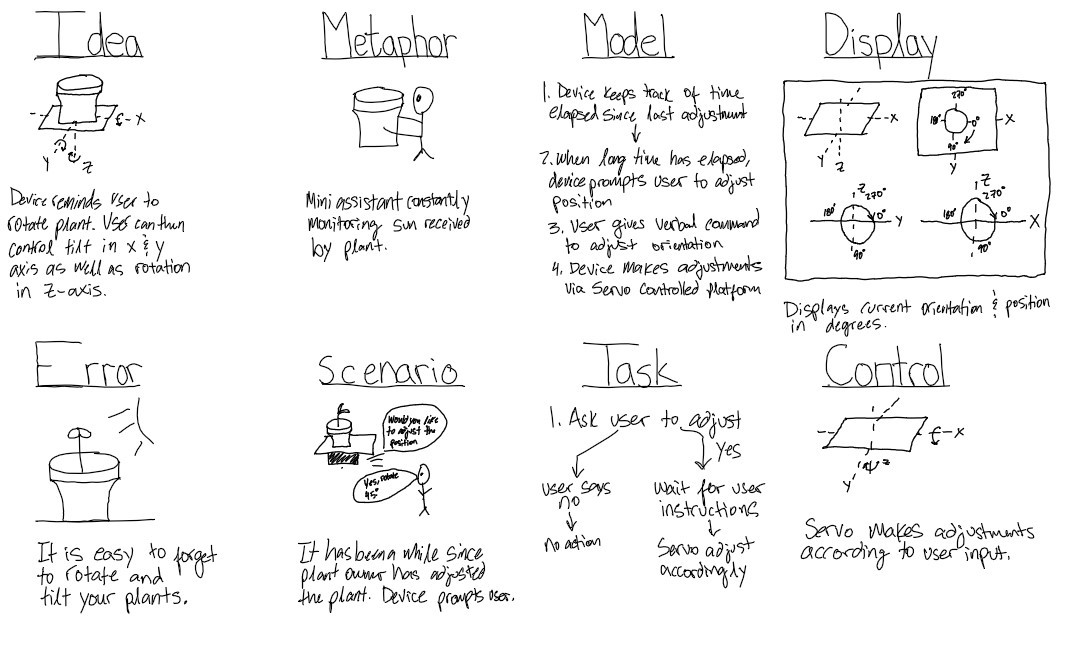 Idea
X
Y
Z
Device reminds user to
rotate plant. User can then
control tilt in x & y
axis as well as rotation
in Z-axis.
Metaphor
Mini assistant constantly
monitoring sun received
by plant.
Model
1. Device keeps track of time
elapsed since last adjustment
2. When long time has elapsed,
device prompts user to adjust
position
3. User gives verbal command
to adjust orientation
4. Device makes adjustments
via Servo Controlled platform
Display
X
Y
Z
270°
180°
0°
90°
X
Y
Z
270°
180°
0°
90°
Y
Z
270°
180°
0°
90°
X
Displays current orientation & position
in degrees.
Error
It is easy to forget
to rotate and
tilt your plants.
Scenario
Would you like
to adjust the
position
Yes, rotate
45°
It has been a while since
plant owner has adjusted
the plant. Device prompts user.
Task
1. Ask user to adjust
Yes
user says
no
No action
Wait for user
instructions
Servo adjust
accordingly
Control
X
Y
Z
Servo makes adjustments
according to user input.